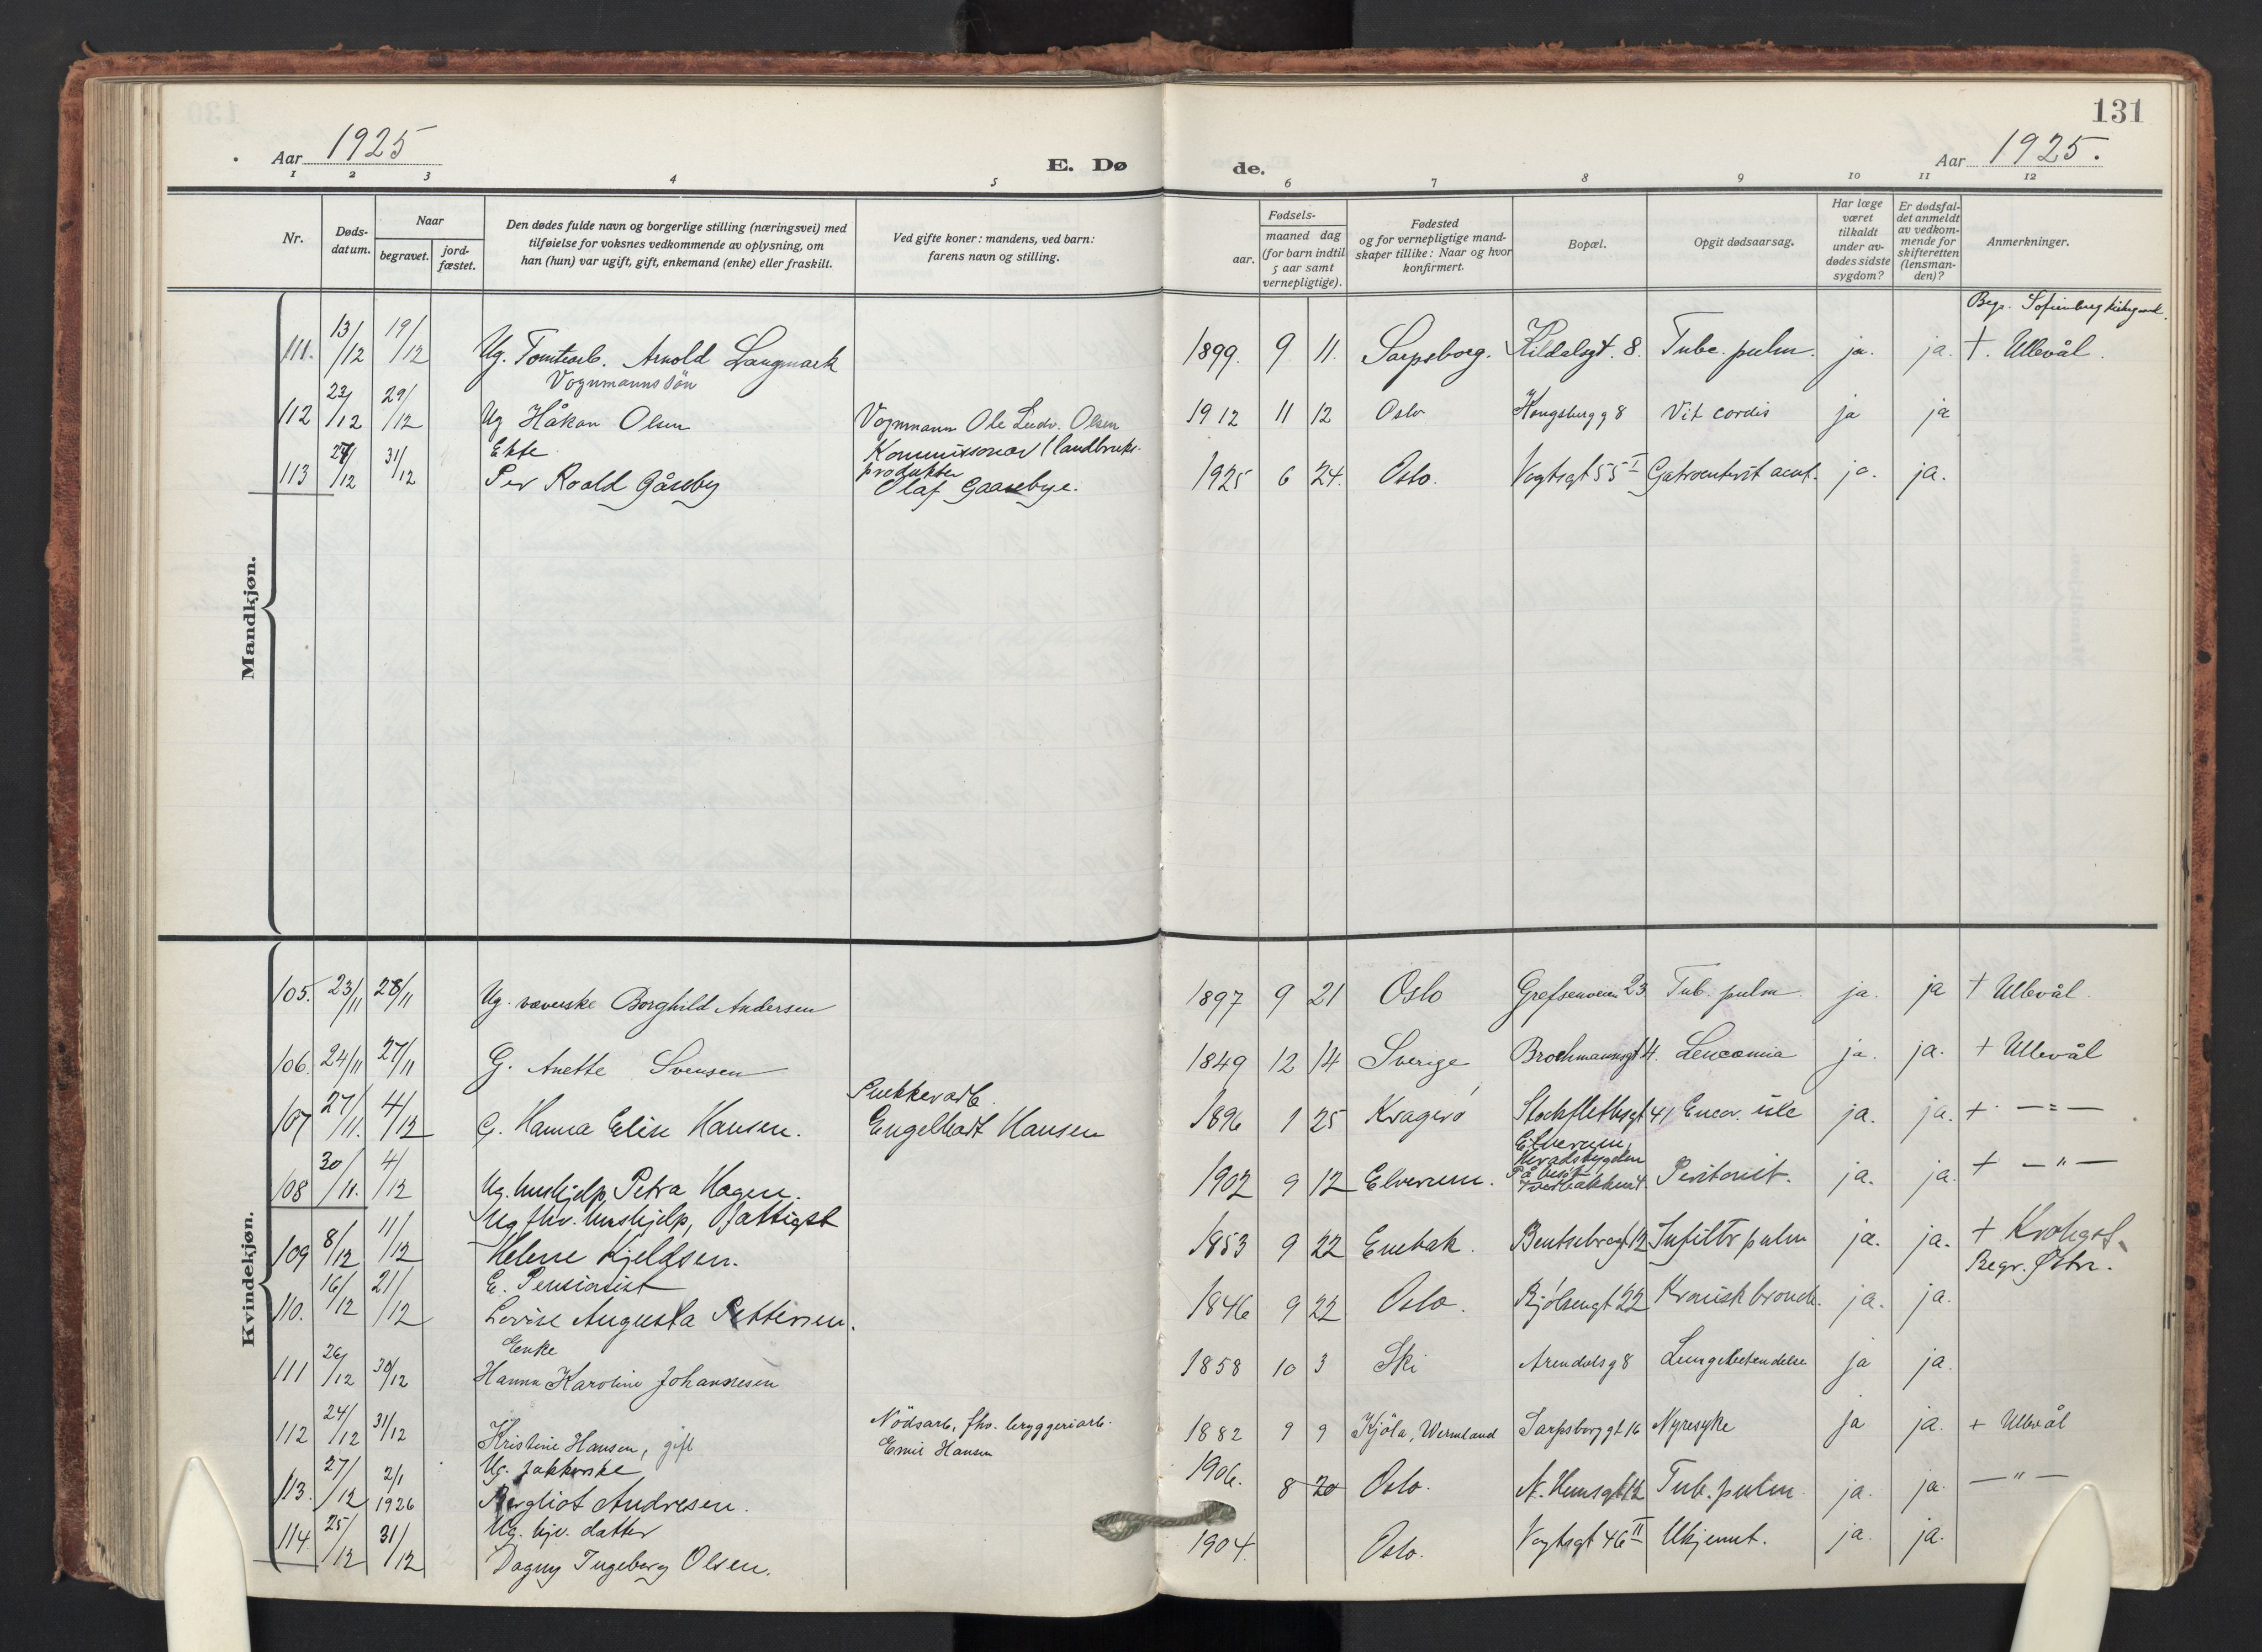 131
Aar 1925
E. Dø
de.
Aar 1925.
1 2 3 4 5 6 7 8 9 10 11 12
Nr.
Døds-
datum.
Naar
begravet.
jord-
fæstet.
Den dødes fulde navn og borgerlige stilling (næringsvei) med
tilføielse for voksnes vedkommende av oplysning, om
han (hun) var ugift, gift, enkemand (enke) eller fraskilt.
Ved gifte koner: mandens, ved barn:
farens navn og stilling.
Fødsels-
aar.
maaned dag
(for barn indtil
5 aar samt
vernepligtige).
Fødested
og for vernepligtige mand-
skaper tillike: Naar og hvor
konfirmert.
Bopæl.
Opgit dødsaarsag.
Har læge
været
tilkaldt
under av-
dødes sidste
sygdom?
Er dødsfal-
det anmeldt
av vedkom-
mende for
skifteretten
(lensman-
den)?
Anmerkninger.
Mandkjøn.
Begr. Sofienberg kirkegaard.
111. 13/12 19/12 Ug. Tomtearb. Arnold Langmark 1899. 9 11. Sarpsborg. Kildalsgt. 8. Tube. pulm. ja. ja. +. Ullevål.
Vognmanns sön
112 23/12 29/12 Ug Håkon Olsen Vognmann Ole Ludv. Olsen 1912 11 12 Oslo Kongsbergg 8 Vit cordis ja ja
Ekte Kommisionær i landbruks-
produkter
113 27/12 31/12 Per Roald Gåseby Olaf Gaasebye. 1925 6 24. Oslo. Vogtsgt 55 I Gatroenterit acut. ja. ja.
Kvindekjøn.
105. 23/11 28/11 Ug. væverske Borghild Andersen 1897 9 21 Oslo Grefsenveien 23 Tub. pulm. ja. ja + Ullevål.
106. 24/11 27/11 G. Anette Svensen 1849 12 14 Sverige Brochmannsgt 4. Leucæmia ja. ja. + Ullevål
Pukkverarb.
107 27/11. 4/12 G. Hanna Elise Hansen. Engelhart Hansen 1896 1 25 Kragerö Stockflethsgt 41 ja. ja. + — = —
Elverum,
Heradsbygden
På besøk
108 30/11. 4/12 Ug. hushjelp, Petra Hagen. 1902 9 12 Elverum. Peritonit. ja. ja. + — " —
Ug fhv. hushjelp, fattigst
109 8/12 11/12 Helene Kjeldsen. 1853 9 22 Enebak. Bentsebrogt 12 Infiltr pulm ja. ja. + Krohgst.
Begr. Østre.
E. Pensionist
110. 16/12 21/12 Lovise Augusta Pettersen. 1846 9 22 Oslo. Bjölsengt 22 Kronisk bronch. ja. ja.
Enke
111 26/12 30/12 Hanna Karoline Johannesen 1858 10 3 Ski Arendalsg 8 Lungebetendelse ja ja.
Nödsarb., fhv. bryggeriarb.
112 24/12 31/12 Kristine Hansen, gift Emil Hansen 1882 9 9 Kjöla, Wermland Sarpsborggt 16 Nyresyke ja ja. + Ullevål
Ug. pakkerske
113. 27/12 2/1 1926 Bergliot Andresen. 1906. 8 20 Oslo. N. Hemsgt 12 Tub. pulm. ja. ja. — " —
Ug. hjv. datter
114 25/12 31/12 Dagny Ingeborg Olsen. 1904. Oslo. Vogtsgt 46 II Ukjennt. ja. ja.